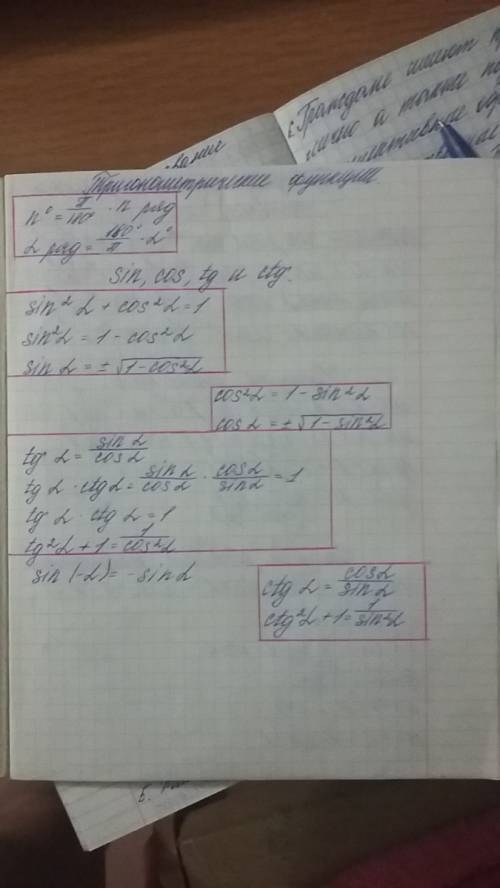 Тригонометрические функции.
n° = π/180° · n рад
α рад = 180°/π · α°
sin, cos, tg и ctg.
sin² α + cos² α = 1
sin² α = 1 - cos² α
sin α = ± √1 - cos² α
cos² α = 1 - sin² α
cos α = ± √1 - sin² α
tg α = sin α/cos α
tg α · ctg α = sin α/cos α · cos α/sin α = 1
tg α · ctg α = 1
tg² α + 1 = 1/cos² α
sin (-α) = - sin α
ctg α = cos α/sin α
ctg² α + 1 = 1/sin² α